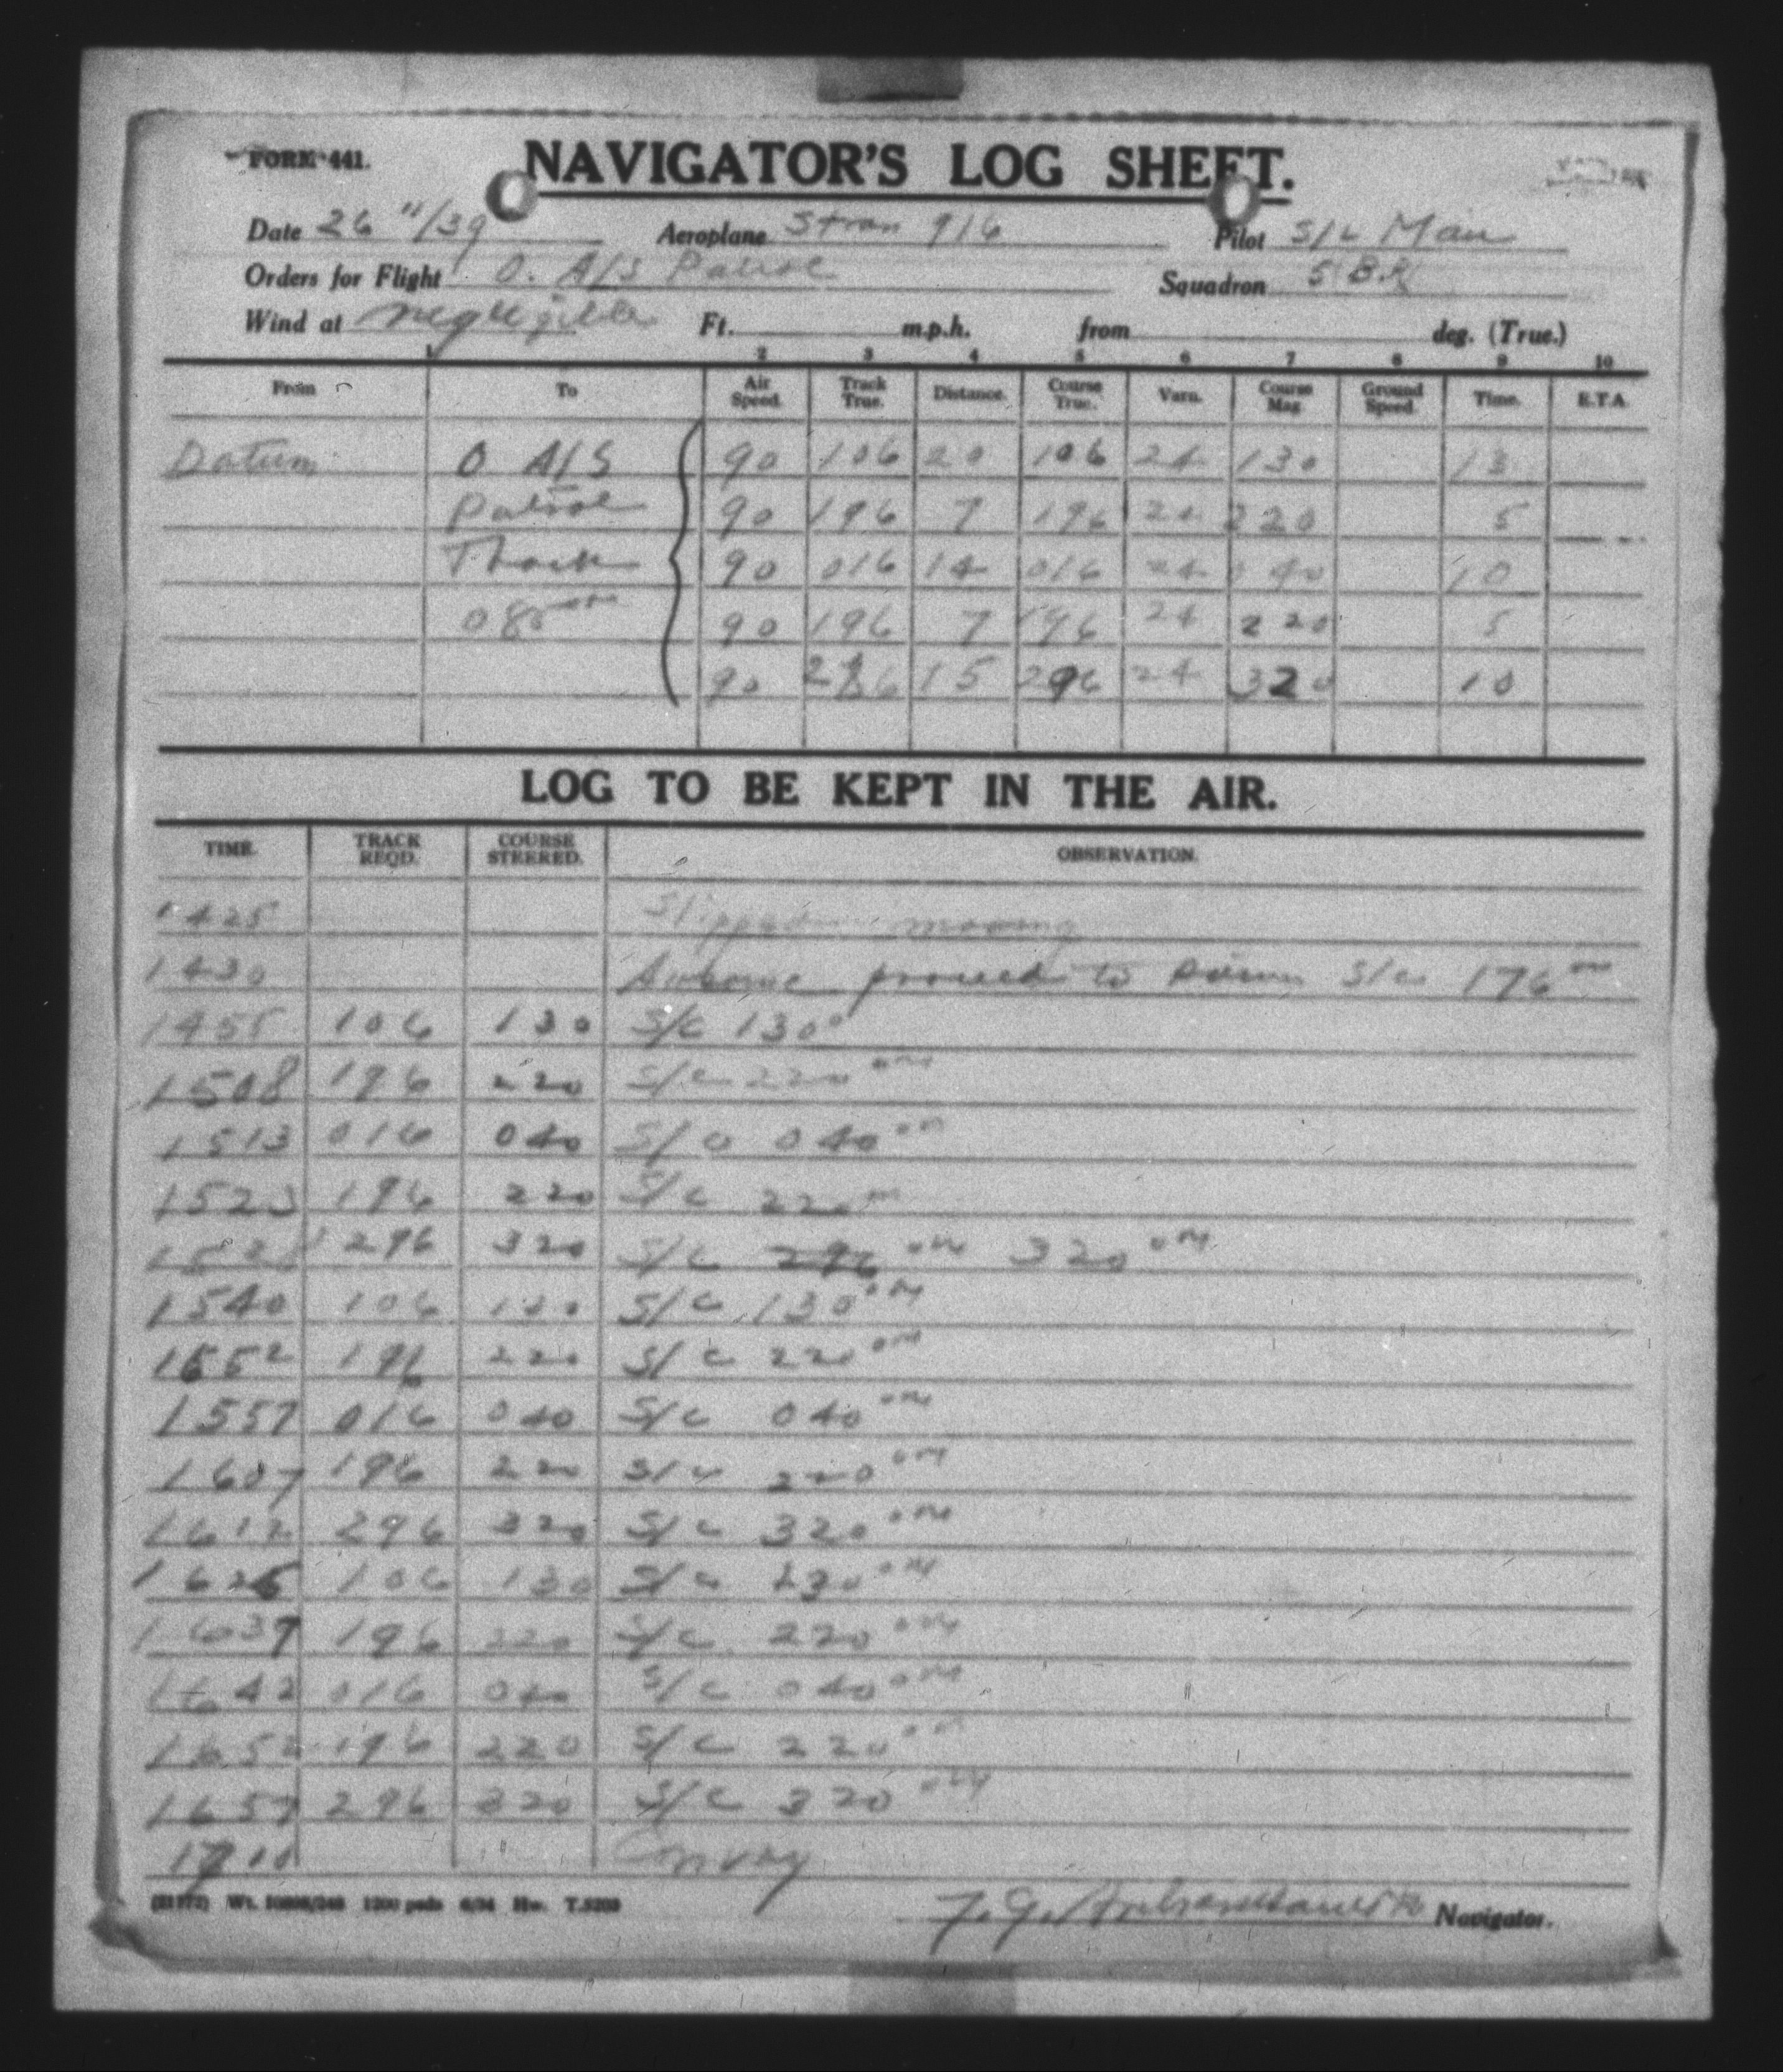 FORM 441.
NAVIGATOR'S LOG SHEET.
Date 26 11/39 Aeroplane Stran 916 Pilot S/L Mair
Orders for Flight O. A/S Patrol Squadron 5 B.R.
Wind at negligible Ft. m.p.h. from deg. (True.)
1 2 3 4 5 6 7 8 9 10
From To Air Speed. Track True. Distance. Course True. Varn. Course Mag. Ground Speed. Time. E.T.A.
Datum O A/S 90 106 20 106 24 130 13
Patrol 90 196 7 196 24 220 5
Track 90 016 14 016 24 040 10
085 90 196 7 196 24 220 5
90 296 15 296 24 320 10
LOG TO BE KEPT IN THE AIR.
TIME. TRACK REQD. COURSE STEERED. OBSERVATION.
1425 Slipped mooring
1430 Airborne proceed to S/C 176°M
1455 106 130 S/C 130°
1508 196 220 S/C 220°M
1513 016 040 S/C 040°M
1523 196 220 S/C 220°M
296 320 S/C 296°M 320°M
1540 106 130 S/C 130°M
1552 196 220 S/C 220°M
1557 016 040 S/C 040°M
1607 196 220 S/C 220°M
1612 296 320 S/C 320°M
1625 106 130 S/C 130°M
1637 196 220 S/C 220°M
1642 016 040 S/C 040°M
1652 196 220 S/C 220°M
1657 296 320 S/C 320°M
1710 Convoy
1200 pads 6/34 Hw. T.5200
Navigator.